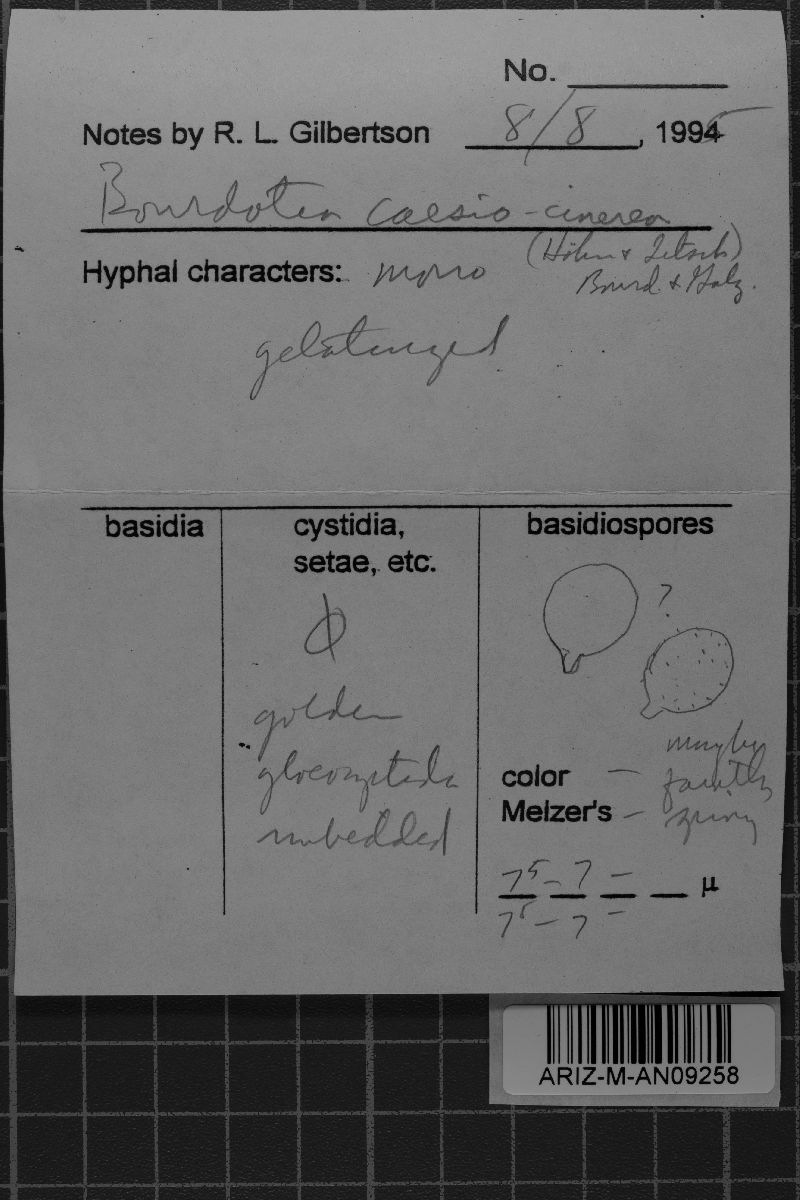 No.
Notes by R. L. Gilbertson 8/8, 1995
Bourdotia caesio-cinerea
(Höhn & Litsch)
Bourd. & Galz.
Hyphal characters: mono
gelatinized
basidia
cystidia,
setae, etc.
basidiospores
golden
gloeocystidia
imbedded
?
maybe
faintly
spiny
color –
Melzer's –
7⁵ – 7 – μ
7⁵ – 7 –
ARIZ-M-AN09258